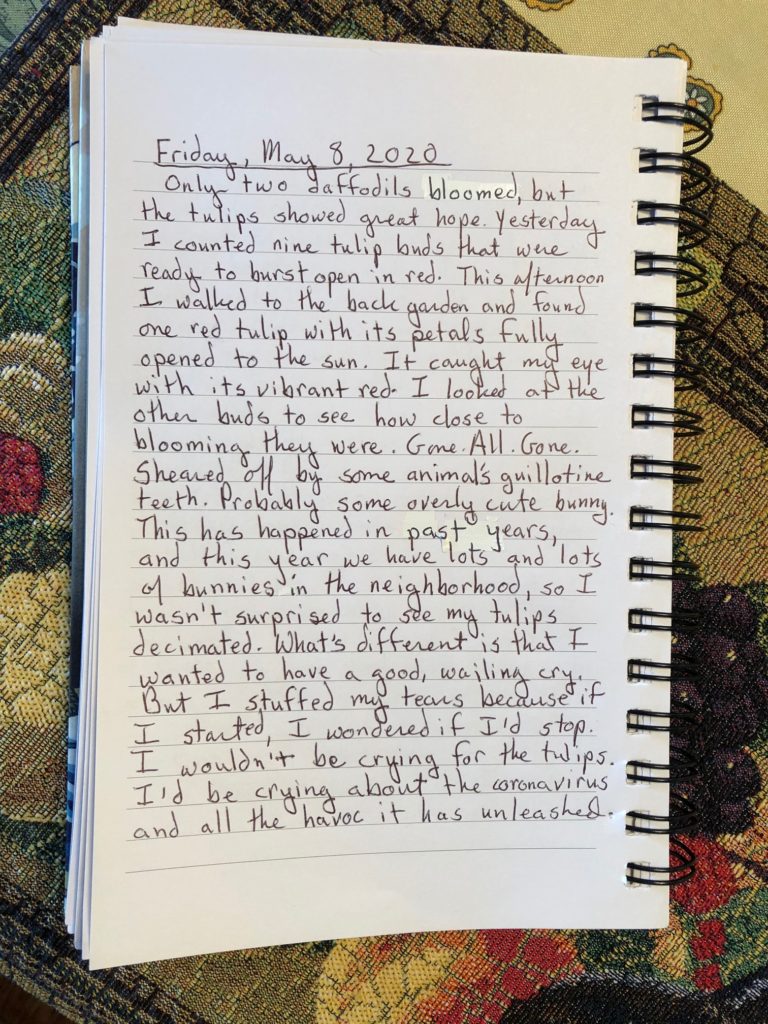 Friday, May 8, 2020
Only two daffodils bloomed, but
the tulips showed great hope. Yesterday
I counted nine tulip buds that were
ready to burst open in red. This afternoon
I walked to the back garden and found
one red tulip with its petals fully
opened to the sun. It caught my eye
with its vibrant red. I looked at the
other buds to see how close to
blooming they were. Gone. All. Gone.
Sheared off by some animal's guillotine
teeth. Probably some overly cute bunny.
This has happened in past years,
and this year we have lots and lots
of bunnies in the neighborhood, so I
wasn't surprised to see my tulips
decimated. What's different is that I
wanted to have a good, wailing cry.
But I stuffed my tears because if
I started, I wondered if I'd stop.
I wouldn't be crying for the tulips.
I'd be crying about the coronavirus
and all the havoc it has unleashed.